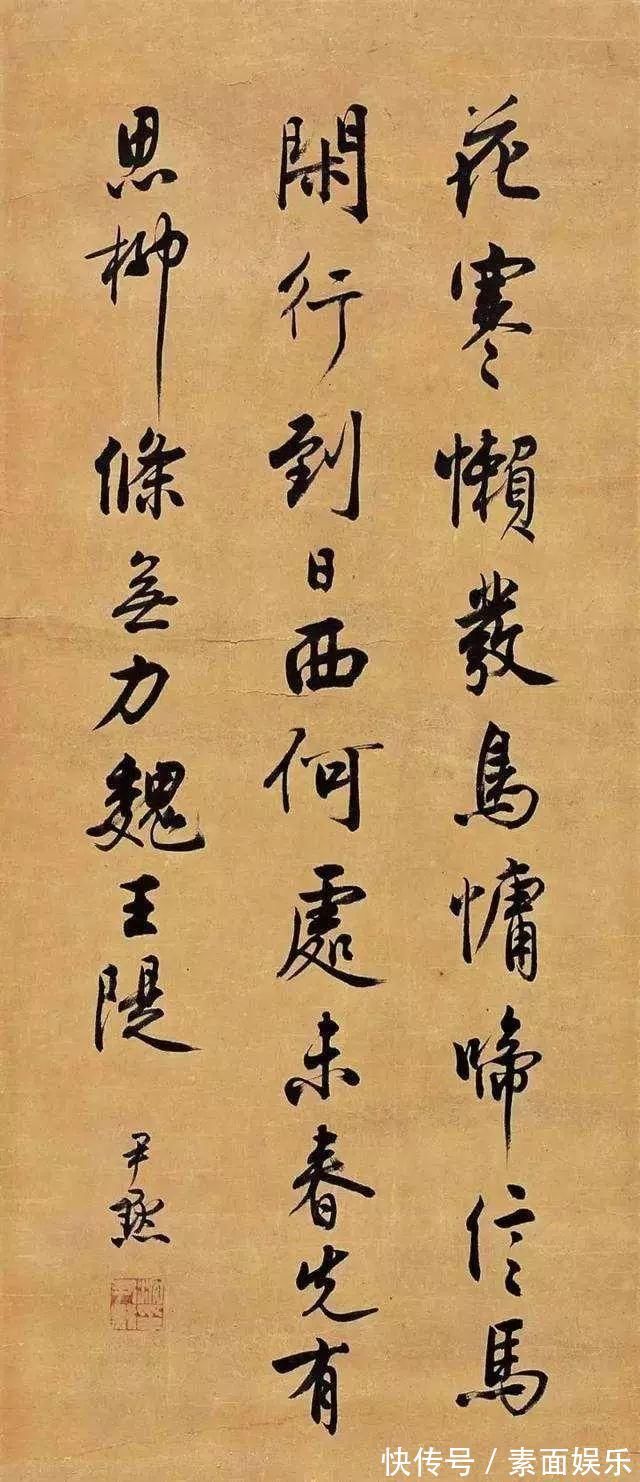 花寒懶發鳥慵啼信馬
閑行到日西何處未春先有
思柳條無力魏王隄
尹默
快传号 / 素面娱乐